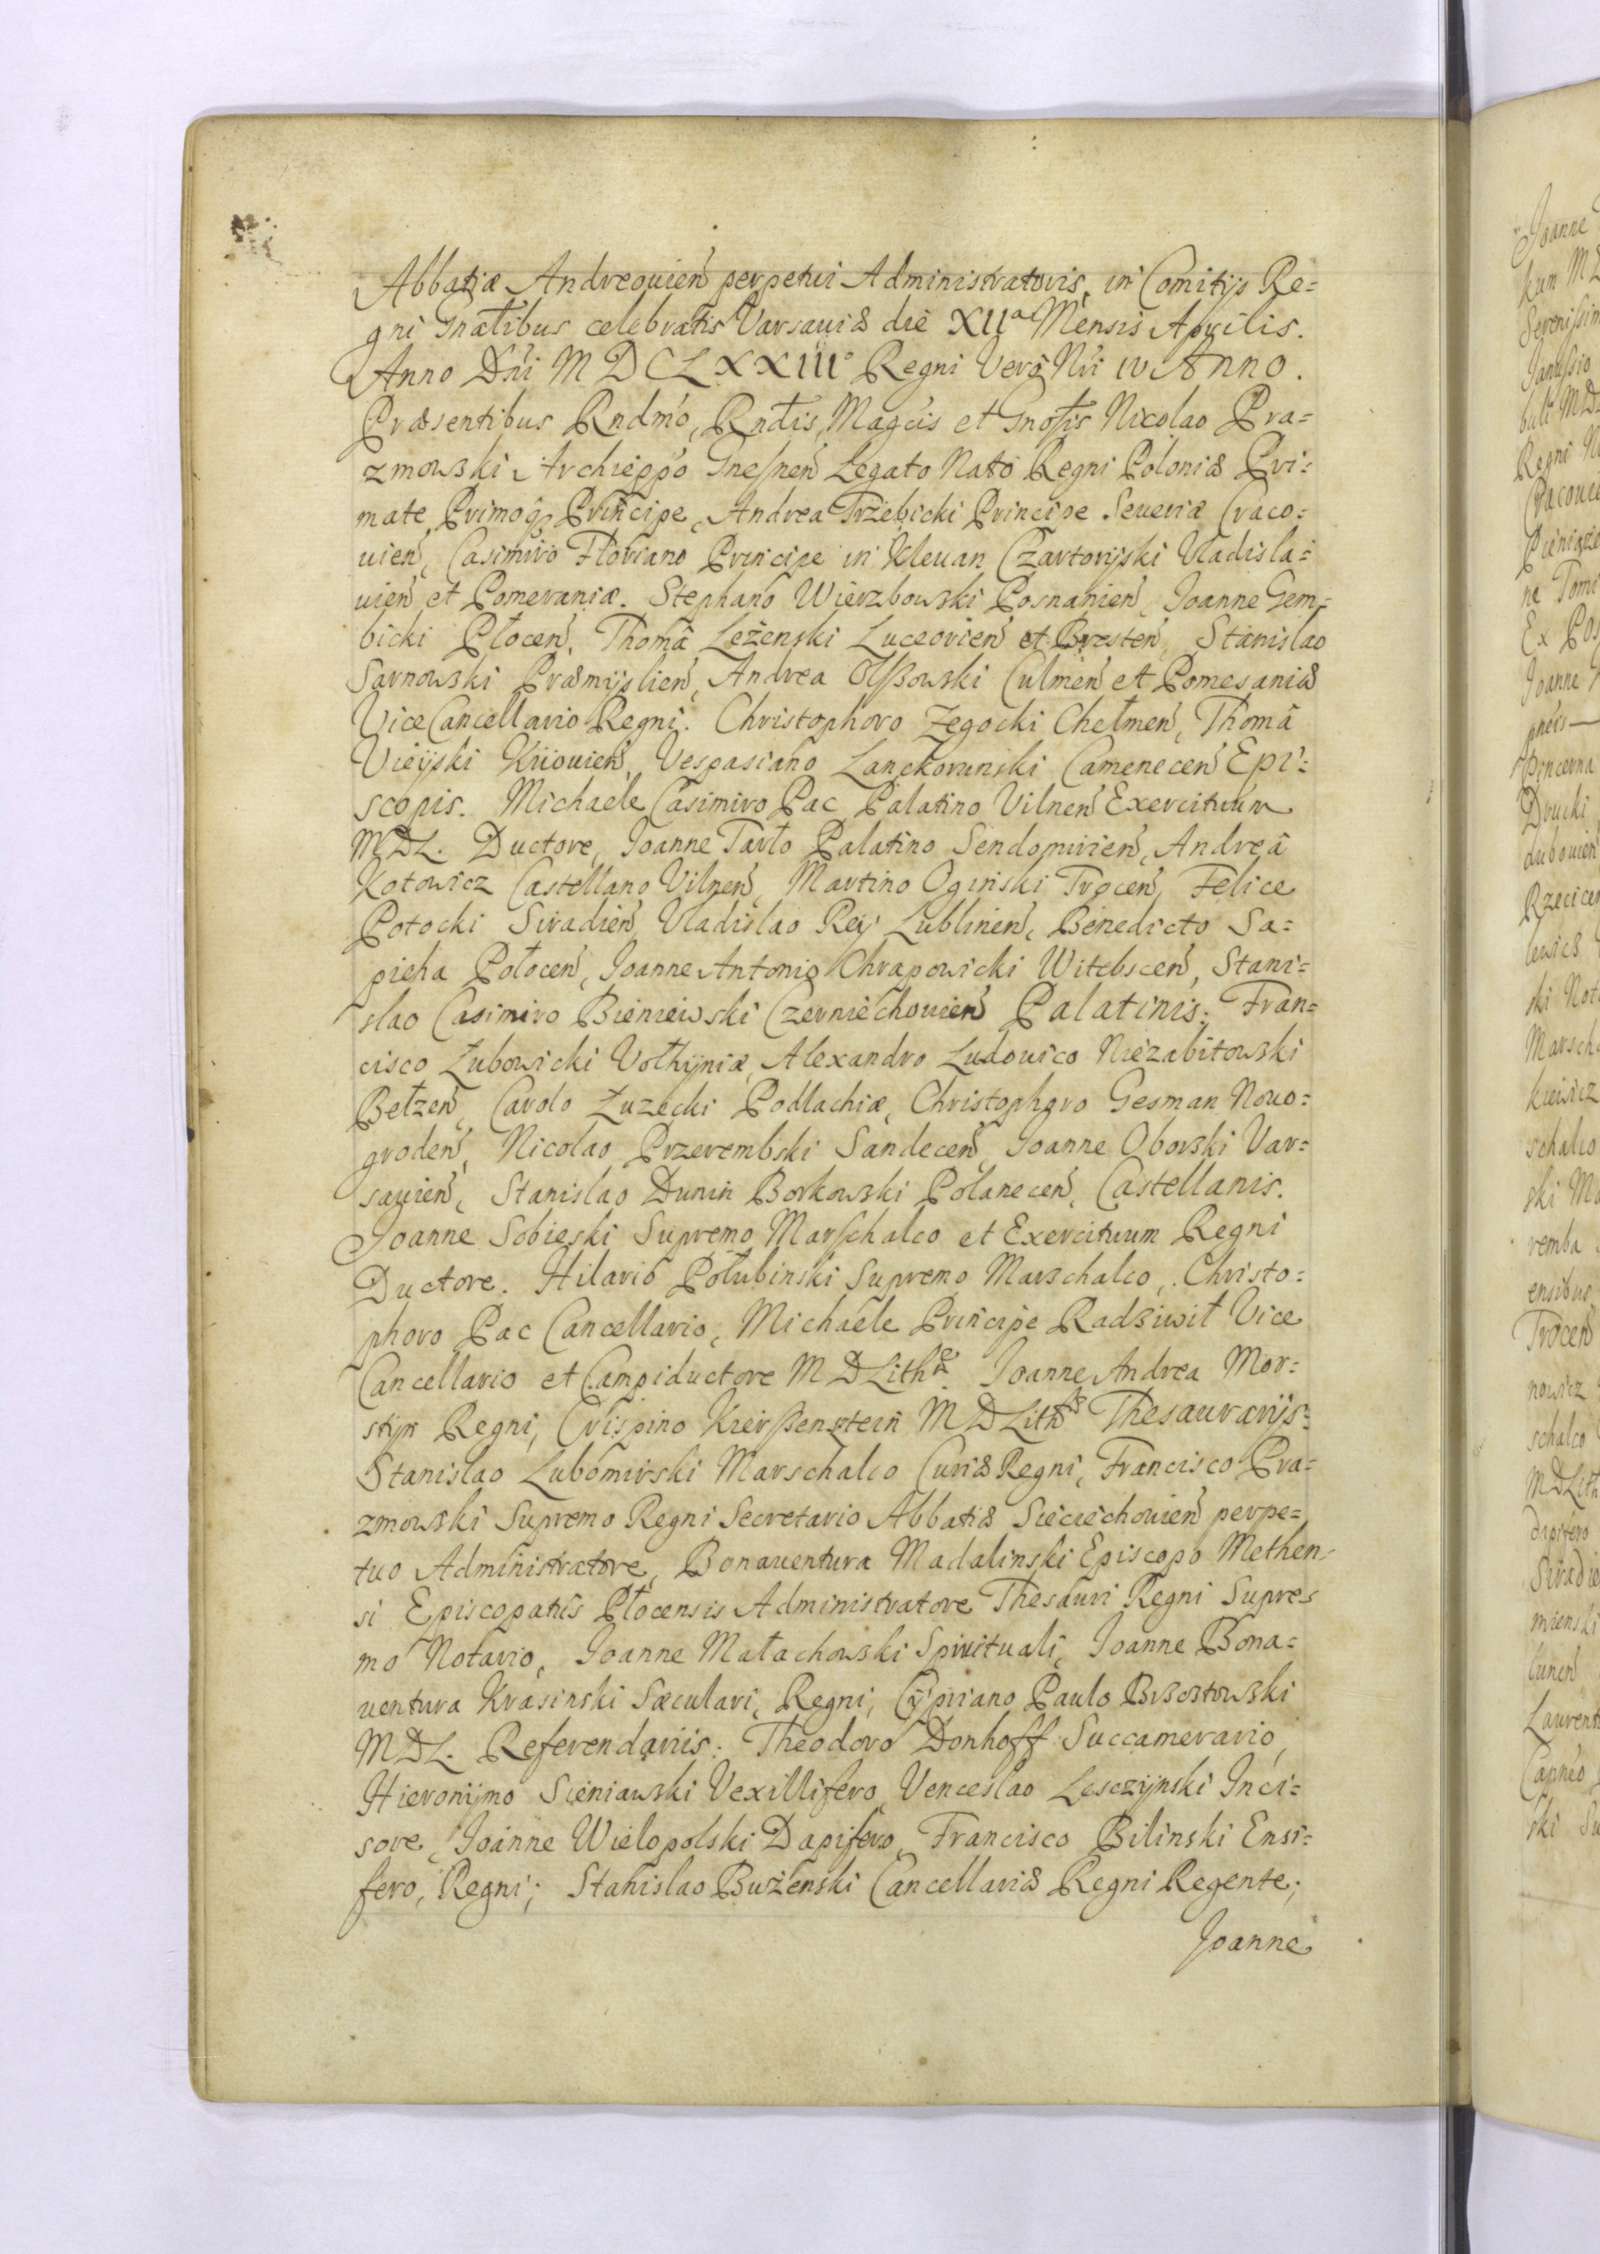 Abbatiæ Andreouien̄ perpetui Administratoris, in Comitijs Re=
gni Gnālibus celebratis Varsauiæ die XIIa Mensis Aprilis.
Anno Dñi MDCLXXIIIo Regni Vero Nr̄i IV Anno.
Præsentibus Rndmo, Rndis, Magcis et Gnosis Nicolao Pra=
zmowski Archieppo Gnesnen̄ Legato Nato Regni Poloniæ Pri=
mate Primoq3 Principe, Andrea Trzebicki Principe Seueriæ Craco=
uien̄, Casimiro Floriano Principe in Kleuan Czartoryjski Vladisla=
uien̄ et Pomeraniæ. Stephano Wierzbowski Posnanien̄, Joanne Gem=
bicki Płocen̄, Thomâ Leżenski Luceorien̄ et Brzesten̄, Stanislao
Sarnowski Præmijslien̄, Andrea Olszowski Culmen̄ et Pomesaniæ
Vice Cancellario Regni. Christophoro Zegocki Chełmen̄, Thomâ
Vieijski Kijouien̄, Vespasiano Lanckorunski Camenecen̄ Epi=
scopis. Michaele Casimiro Pac Palatino Vilnen̄ Exercituum
MDL. Ductore, Joanne Tarło Palatino Sendomirien̄, Andreâ
Kotowicz Castellano Vilnen̄, Martino Oginski Trocen̄, Felice
Potocki Siradien̄, Vladislao Reij Lublinen̄, Benedicto Sa=
pieha Połocen̄, Joanne Antonio Chrapowicki Witebscen̄, Stani=
slao Casimiro Bieniewski Czerniechouien̄ Palatinis. Fran=
cisco Łubowicki Vołhyniæ, Alexandro Ludouico Niezabitowski
Bełzen̄, Carolo Łuzecki Podlachiæ, Christophoro Gesman Nouo=
groden̄, Nicolao Przerembski Sandecen̄, Joanne Oborski Var=
sauien̄, Stanislao Dunin Borkowski Połanecen̄, Castellanis.
Joanne Sobieski Supremo Marschalco et Exercituum Regni
Ductore. Hilario Połubinski Supremo Marschalco, Christo=
phoro Pac Cancellario, Michaele Principe Radziwił Vice
Cancellario et Campiductore MDLithæ. Joanne Andrea Mor=
stijn Regni, Crispino Kierszensztein MDLithæ Thesaurarijs.
Stanislao Lubomirski Marschalco Curiæ Regni, Francisco Pra=
zmowski Supremo Regni Secretario Abbatiæ Sieciechouien̄ perpe=
tuo Administratore, Bonauentura Madalinski Episcopo Methen=
si Episcopatûs Płocensis Administratore Thesauri Regni Supre=
mo Notario, Joanne Małachowski Spirituali, Joanne Bona=
uentura Krasinski Sæculari, Regni, Cypriano Paulo Brzostowski
MDL. Referendariis. Theodoro Donhoff Succamerario,
Hieronijmo Sieniawski Vexillifero, Venceslao Lesczijnski Inci=
sore, Joanne Wielopolski Dapifero, Francisco Bilinski Ensi=
fero, Regni; Stanislao Bużenski Cancellariæ Regni Regente;
Joanne